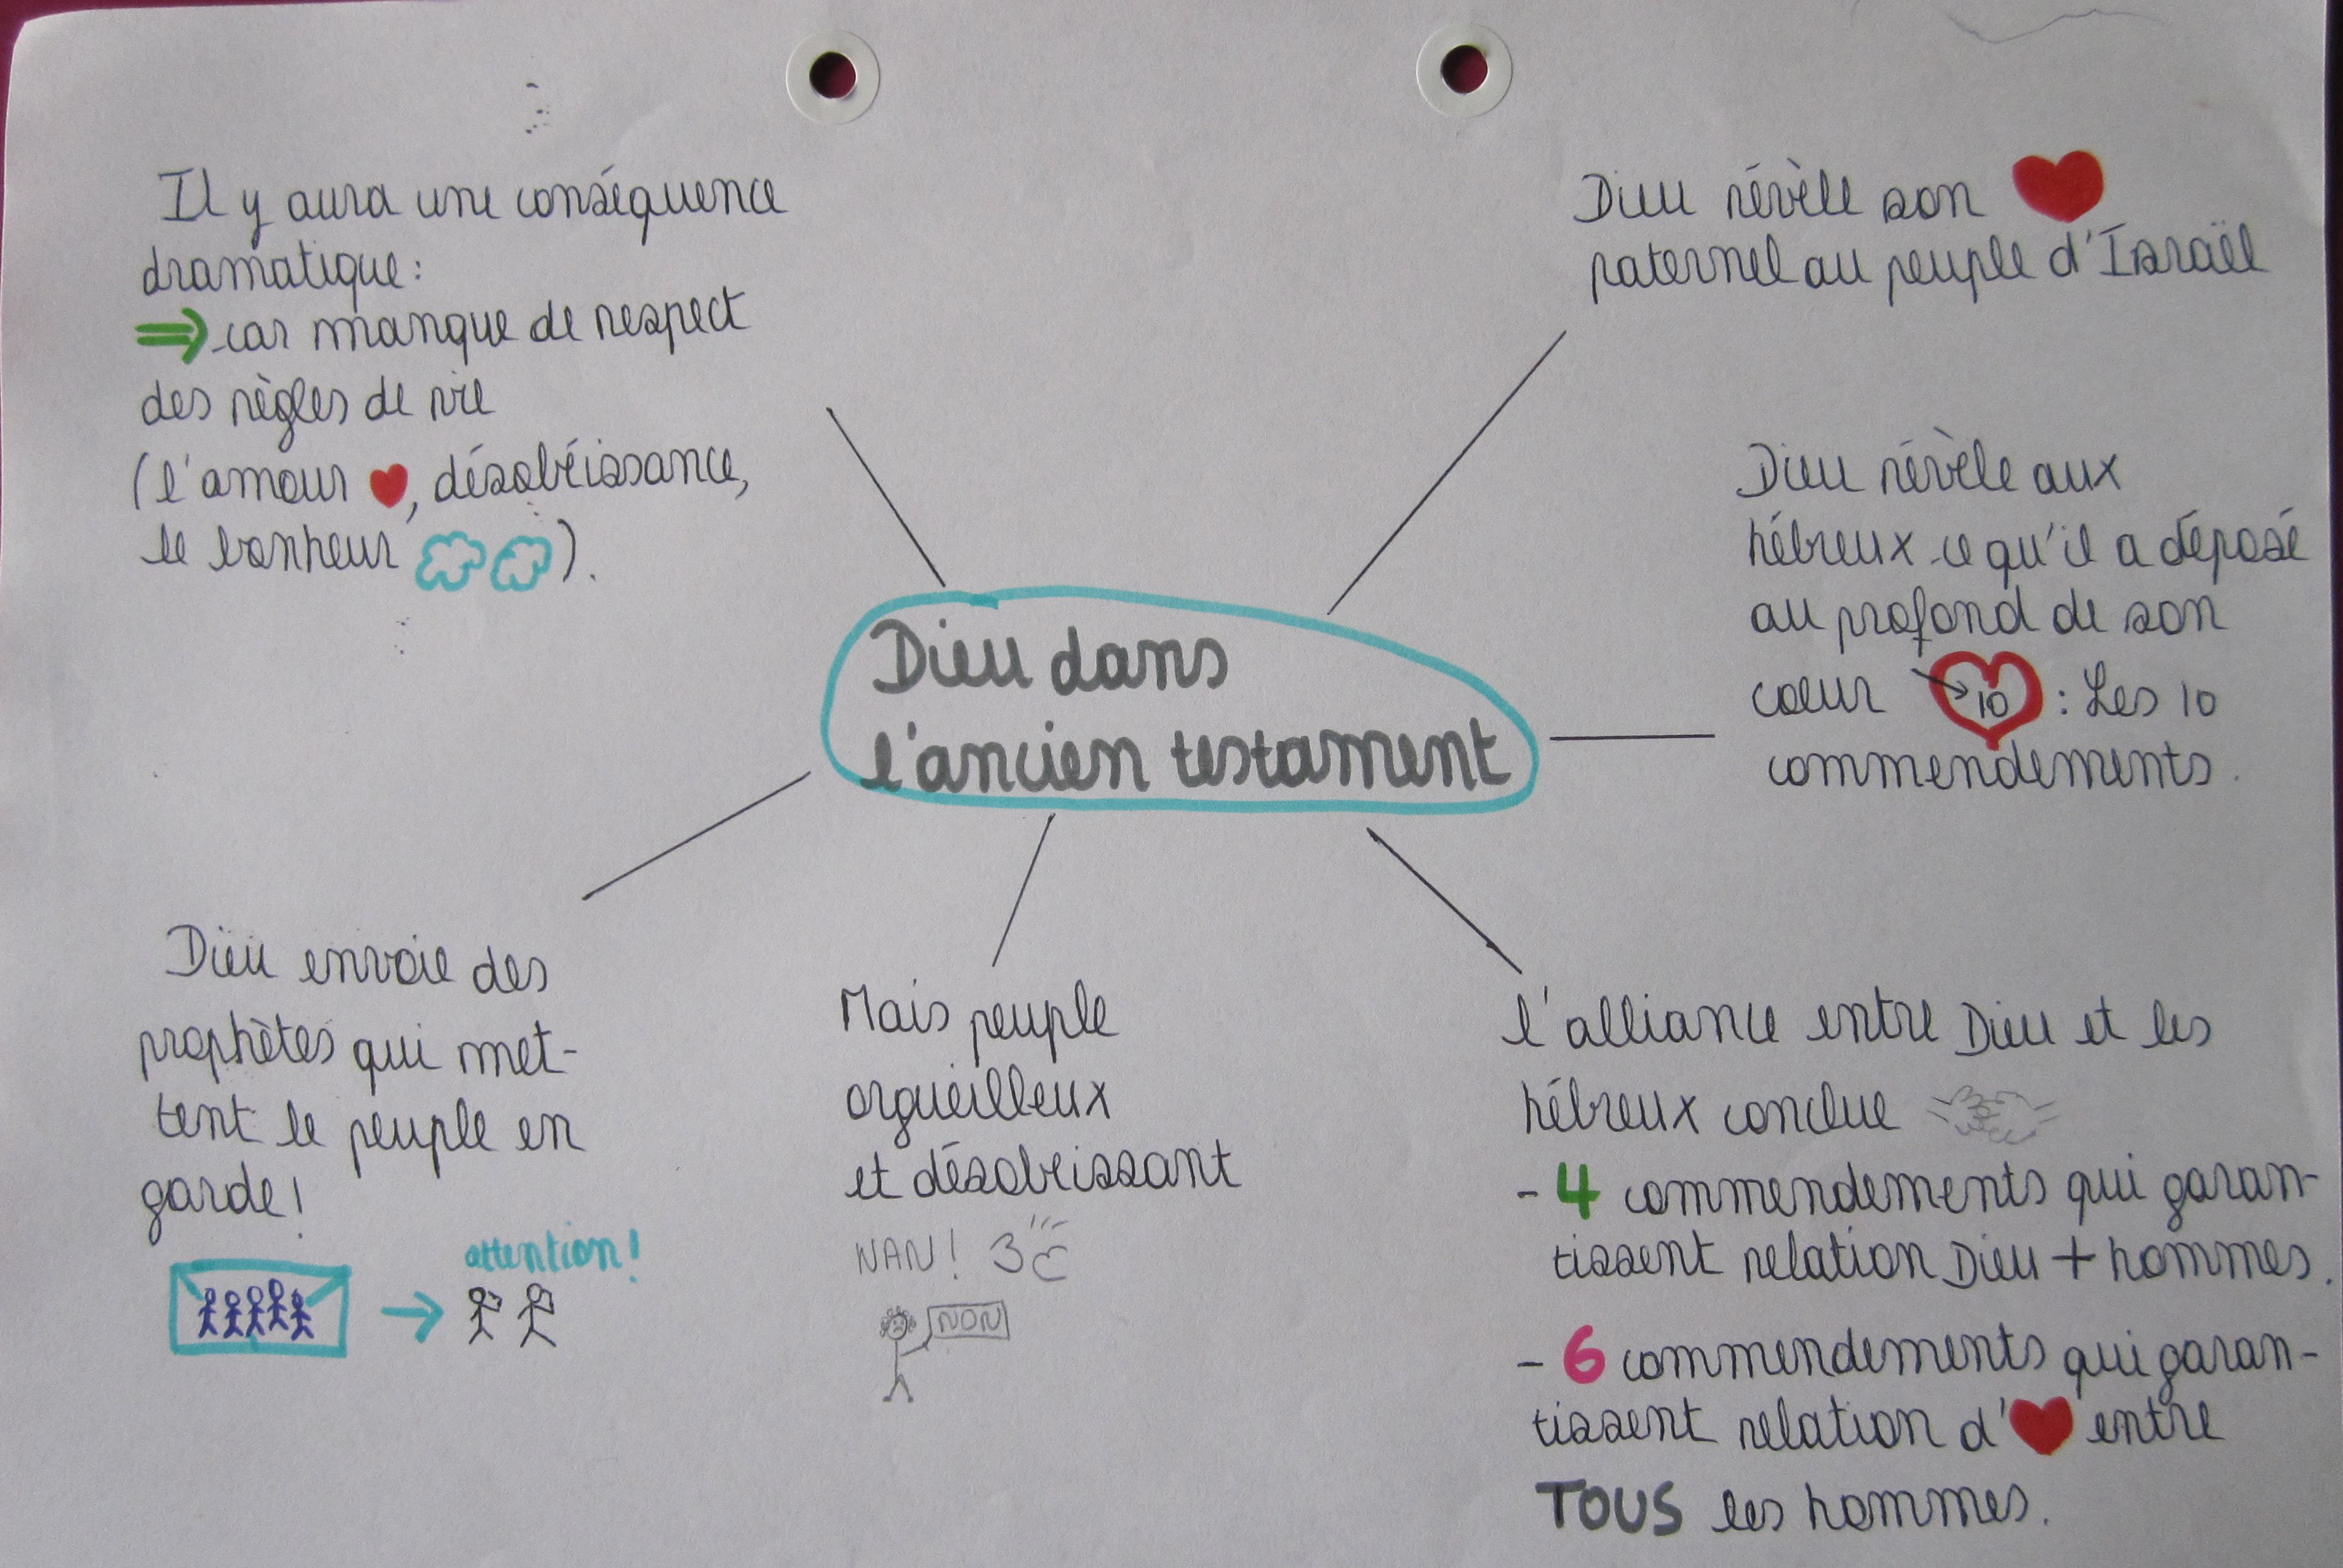 Dieu dans
l'ancien testament
Dieu révèle son
paternel au peuple d'Israël
Dieu révèle aux
hébreux ce qu'il a déposé
au profond de son
cœur 10 : Les 10
commendements.
l'alliance entre Dieu et les
hébreux conclue
- 4 commendements qui garan-
tissent relation Dieu + hommes.
- 6 commendements qui garan-
tissent relation d' entre
TOUS les hommes.
Mais peuple
orgueilleux
et désobeissant
NAN!
NON
Dieu envoie des
prophètes qui met-
tent le peuple en
garde!
attention!
Il y aura une conséquence
dramatique:
car manque de respect
des règles de vie
(l'amour , désobéissance,
le bonheur ).